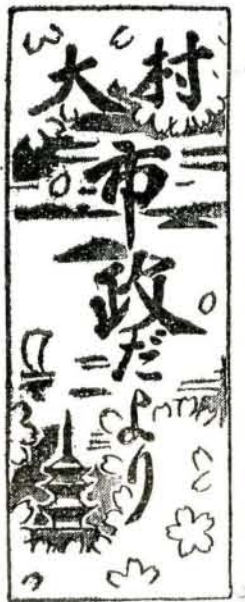 大村
市政だより